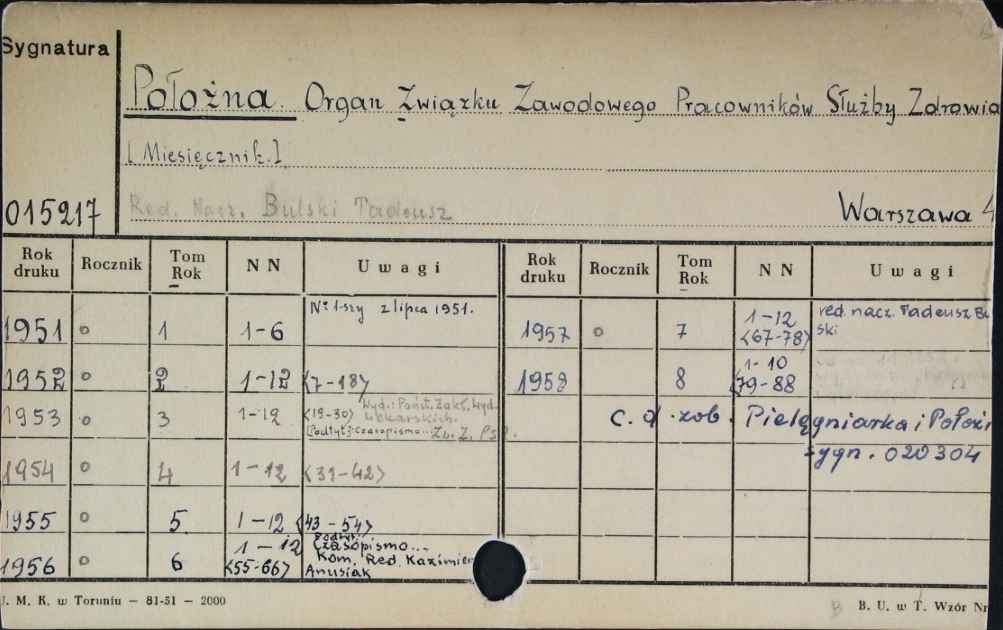 Sygnatura
Położna. Organ Związku Zawodowego Pracowników Służby Zdrowia
[Miesięcznik.]
015217 Red. Nacz. Bulski Tadeusz Warszawa 4
Rok druku Rocznik Tom Rok NN Uwagi Rok druku Rocznik Tom Rok NN Uwagi
1951 o 1 1-6 Nr 1-szy z lipca 1951.
1952 o 2 1-12 <7-18>
1953 o 3 1-12 <19-30> Wyd.: Państ. Zakł. Wyd. Lekarskich. [Podtyt.]: Czasopismo... Zw. Z. P.S.
1954 o 4 1-12 <31-42>
1955 o 5 1-12 <43-54>
1956 o 6 1-12 <55-66> Podtyt. Czasopismo... Kom. Red. Kazimier Anusiak
1957 o 7 1-12 <67-78> red. nacz. Tadeusz Bu ski
1958 8 1-10 <79-88
c. d. zob. Pielęgniarka i Położ
sygn. 020304
J. M. K. w Toruniu – 81-51 – 2000
B B. U. w T. Wzór Nr